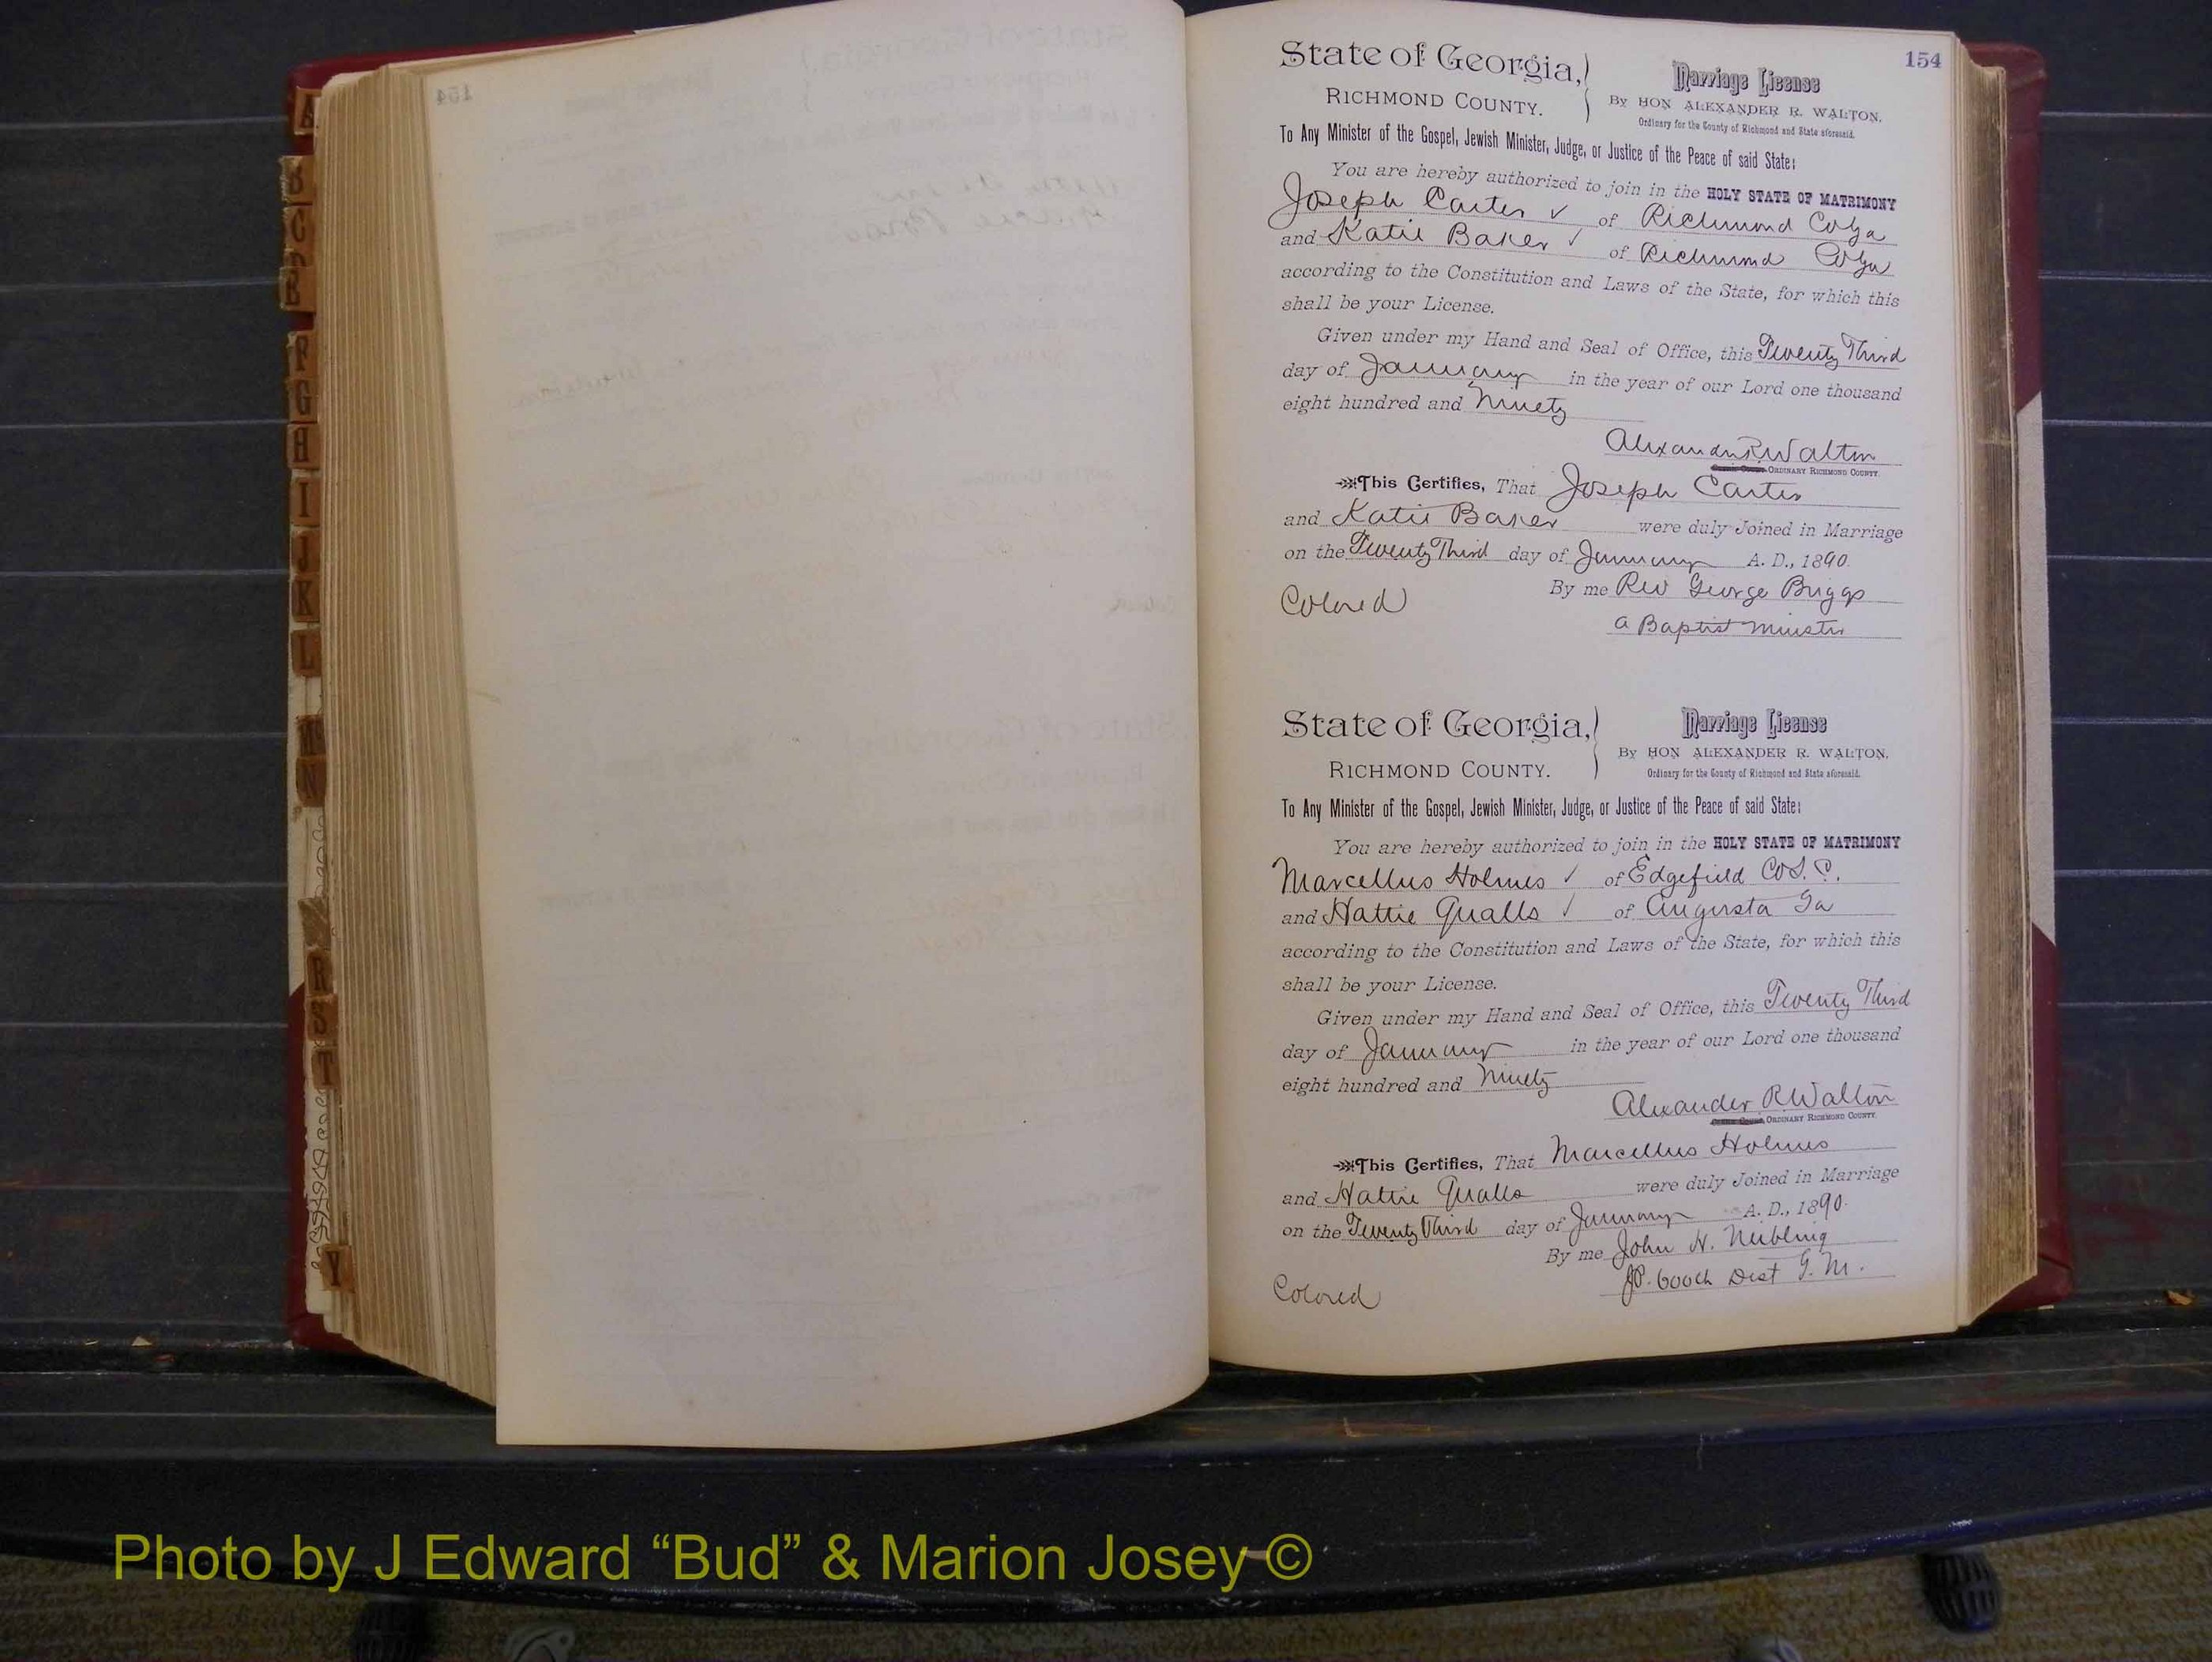 154
State of Georgia,
RICHMOND COUNTY.
Marriage License
By HON ALEXANDER R. WALTON,
Ordinary for the County of Richmond and State aforesaid.
To Any Minister of the Gospel, Jewish Minister, Judge, or Justice of the Peace of said State:
You are hereby authorized to join in the HOLY STATE OF MATRIMONY
Joseph Carter ✓ of Richmond Co Ga
and Katie Baker ✓ of Richmond Co Ga
according to the Constitution and Laws of the State, for which this
shall be your License.
Given under my Hand and Seal of Office, this Twenty Third
day of January in the year of our Lord one thousand
eight hundred and Ninety
Alexander R Walton
ORDINARY RICHMOND COUNTY.
This Certifies, That Joseph Carter
and Katie Baker were duly Joined in Marriage
on the Twenty Third day of January A. D., 1890.
By me Rev George Briggs
Colored
a Baptist Minister
State of Georgia,
RICHMOND COUNTY.
Marriage License
By HON ALEXANDER R. WALTON,
Ordinary for the County of Richmond and State aforesaid.
To Any Minister of the Gospel, Jewish Minister, Judge, or Justice of the Peace of said State:
You are hereby authorized to join in the HOLY STATE OF MATRIMONY
Marcellus Holmes ✓ of Edgefield Co S. C.
and Hattie Qualls ✓ of Augusta Ga
according to the Constitution and Laws of the State, for which this
shall be your License.
Given under my Hand and Seal of Office, this Twenty Third
day of January in the year of our Lord one thousand
eight hundred and Ninety
Alexander R Walton
ORDINARY RICHMOND COUNTY.
This Certifies, That Marcellus Holmes
and Hattie Qualls were duly Joined in Marriage
on the Twenty Third day of January A. D., 1890.
By me John H. Neibling
JP. 600th Dist G. M.
Colored
B
C
F
G
H
I
J
K
L
M
N
R
S
T
Y
Photo by J Edward “Bud” & Marion Josey ©